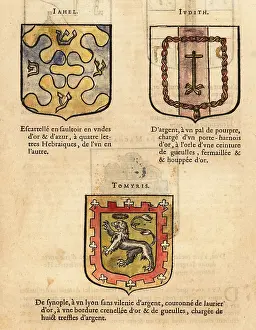 IAHEL.
IVDITH.
Escartellé en saultoir en vndes
d'or & d'azur, à quatre let-
tres Hebraiques, de l'vn en
l'autre.
D'argent, à vn pal de pourpre,
chargé d'vn porte-harnois
d'or, à l'orle d'vne ceinture
de gueulles, fermaillée &
& houppée d'or.
TOMYRIS.
De synople, à vn lyon sans vilenie d'argent, couronné de laurier
d'or, à vne bordure crenellée d'or & de gueulles, chargée de
huict treffles d'argent.